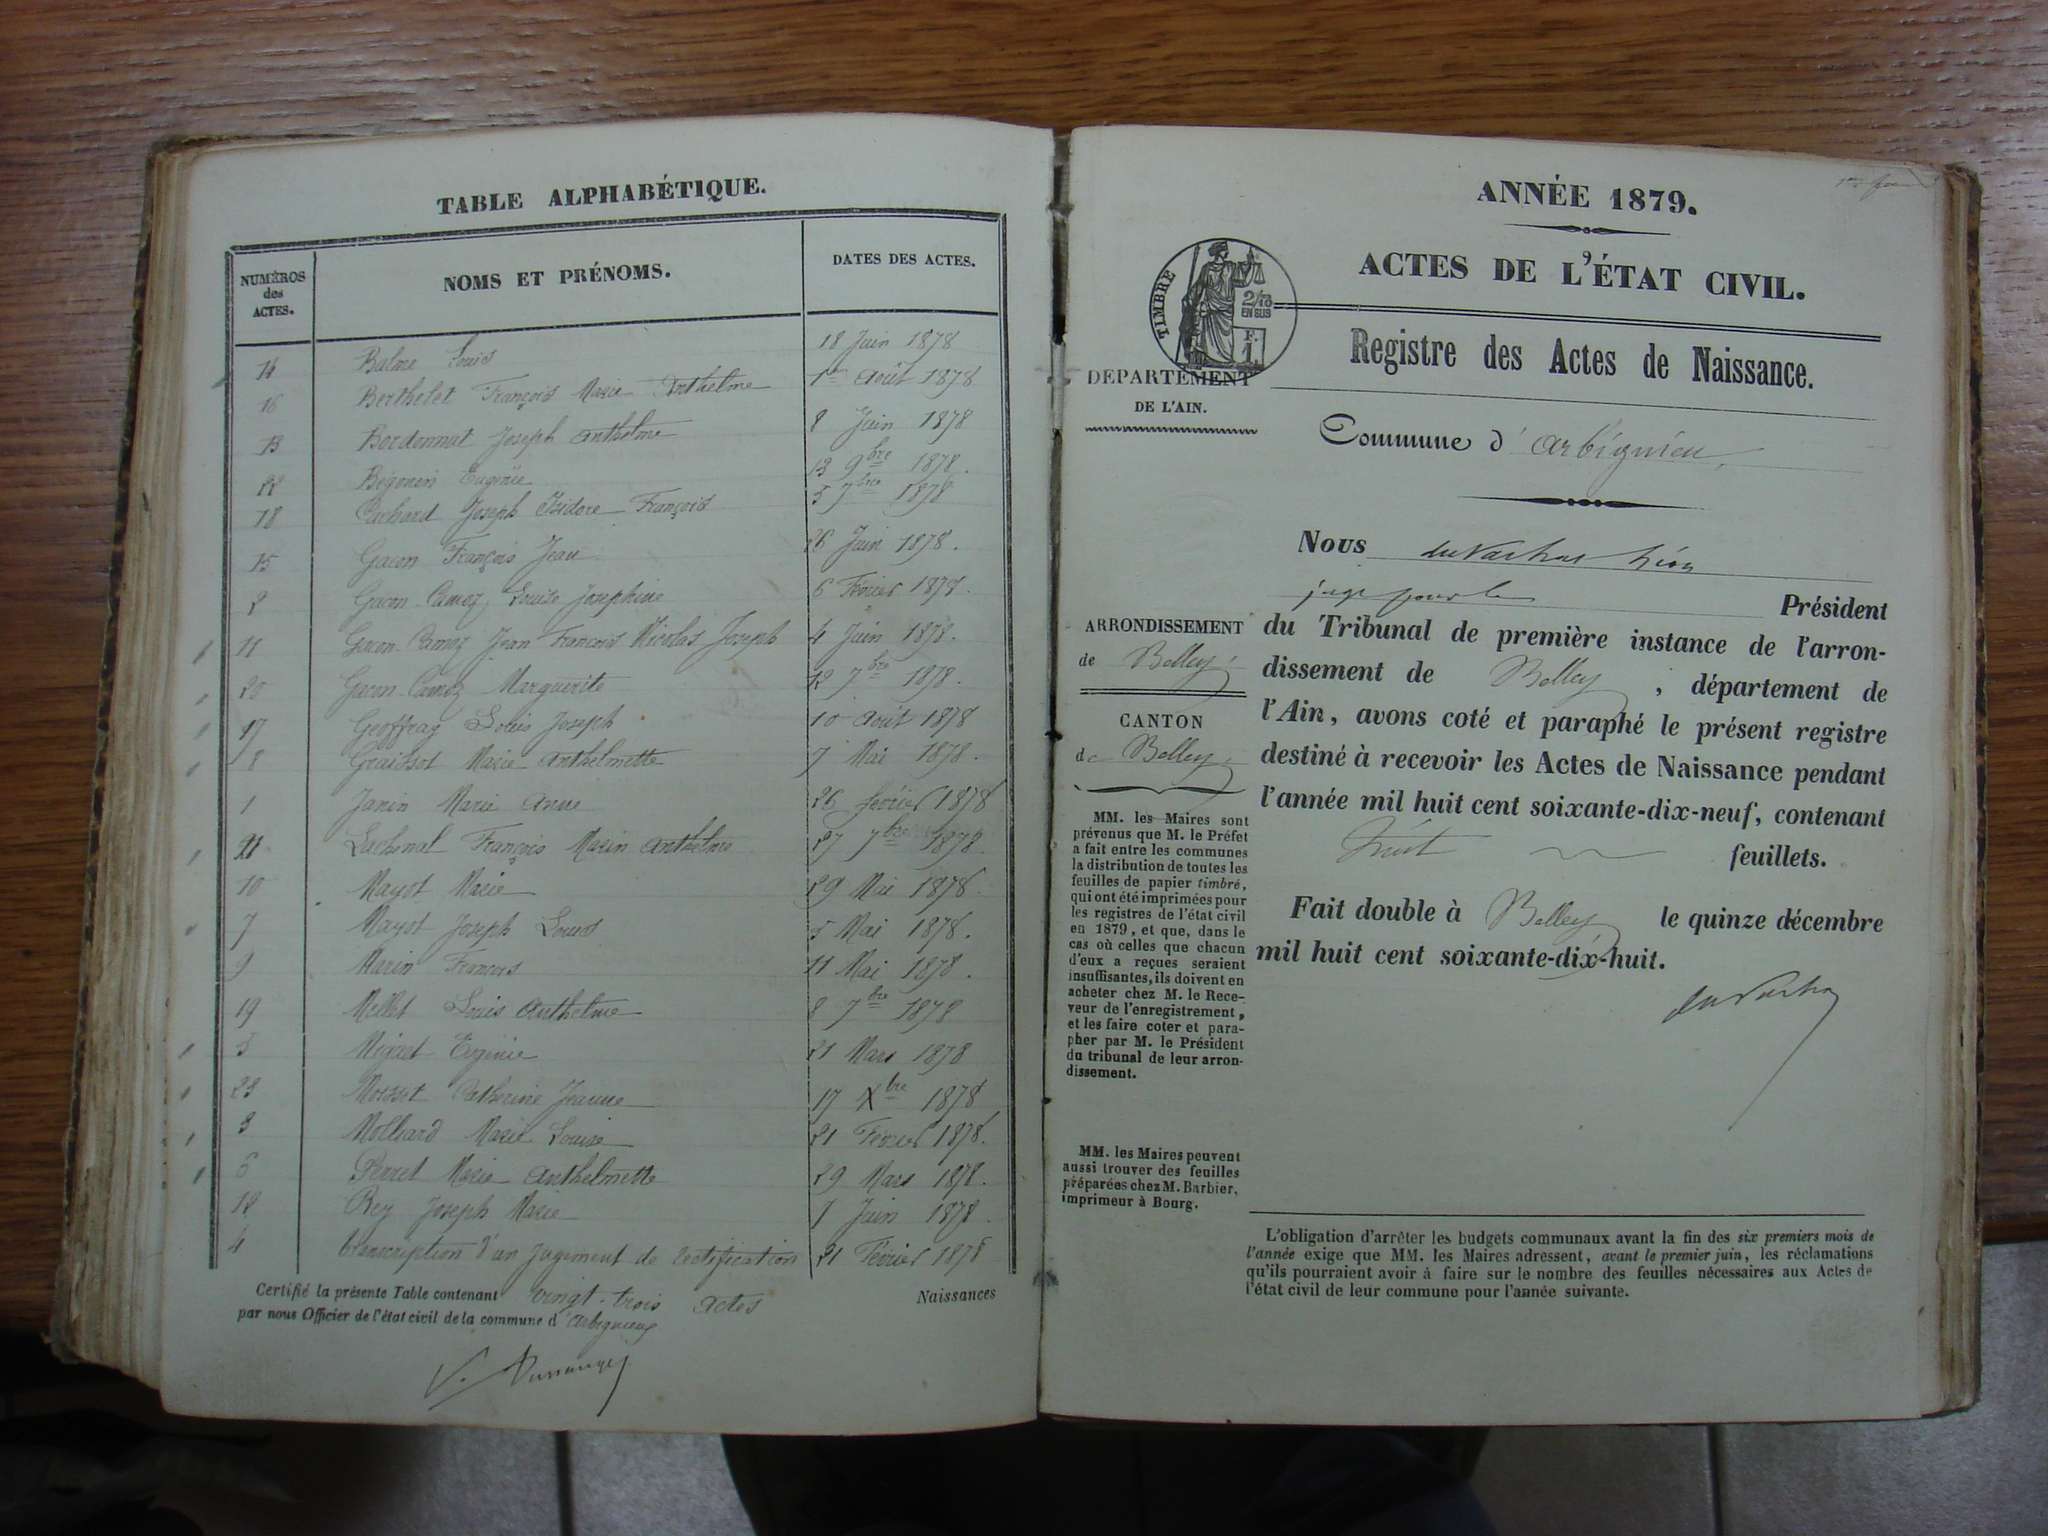 TABLE ALPHABÉTIQUE.
NUMÉROS des ACTES.
NOMS ET PRÉNOMS.
DATES DES ACTES.
14 Balme Louis 18 Juin 1878
16 Berthelet François Marie Anthelme 1er Août 1878
13 Bordonnat Joseph Anthelme 8 Juin 1878
22 Eugénie 13 9bre 1878.
18 Joseph Isidore François 5 7bre 1878
15 Gacon François Jean 26 Juin 1878.
2 Gacon-Camoz Louise Josephine 6 Février 1878.
11 Gacon-Camoz Jean François Nicolas Joseph 4 Juin 1878.
20 Gacon-Camoz Marguerite 12 7bre 1878.
17 Geoffray Louis Joseph 10 Août 1878
8 Marie Anthelmette 7 Mai 1878.
1 Janin Marie Anne 26 1878
21 Lachenal François Marin Anthelme 27 7bre 1878
10 Mayot Marie 29 Mai 1878.
7 Mayot Joseph Louis 5 Mai 1878.
9 Marin François 11 Mai 1878.
19 Mellet Louis Anthelme 8 7bre 1878
5 Eugénie 21 Mars 1878
23 Catherine Jeanne 17 Xbre 1878
3 Molliard Marie Louise 21 Février 1878.
6 Perret Marie Anthelmette 29 Mars 1878.
12 Rey Joseph Marie 7 Juin 1878.
4 transcription d'un jugement de rectification 21 Février 1878
Certifié la présente Table contenant vingt-trois actes Naissances
par nous Officier de l'état civil de la commune d'Arbignieu
ANNÉE 1879.
ACTES DE L'ÉTAT CIVIL.
TIMBRE
2/10 EN SUS
F. 1.
Registre des Actes de Naissance.
DEPARTEMENT
DE L'AIN.
Commune d'Arbignieu
Nous
juge pour le Président
du Tribunal de première instance de l'arron-
dissement de Belley, département de
l'Ain, avons coté et paraphé le présent registre
destiné à recevoir les Actes de Naissance pendant
l'année mil huit cent soixante-dix-neuf, contenant
huit feuillets.
Fait double à Belley le quinze décembre
mil huit cent soixante-dix-huit.
ARRONDISSEMENT
de Belley
CANTON
de Belley
MM. les Maires sont
prévenus que M. le Préfet
a fait entre les communes
la distribution de toutes les
feuilles de papier timbré,
qui ont été imprimées pour
les registres de l'état civil
en 1879, et que, dans le
cas où celles que chacun
d'eux a reçues seraient
insuffisantes, ils doivent en
acheter chez M. le Rece-
veur de l'enregistrement,
et les faire coter et para-
pher par M. le Président
du tribunal de leur arron-
dissement.
MM. les Maires peuvent
aussi trouver des feuilles
préparées chez M. Barbier,
imprimeur à Bourg.
L'obligation d'arrêter les budgets communaux avant la fin des six premiers mois de
l'année exige que MM. les Maires adressent, avant le premier juin, les réclamations
qu'ils pourraient avoir à faire sur le nombre des feuilles nécessaires aux Actes de
l'état civil de leur commune pour l'année suivante.